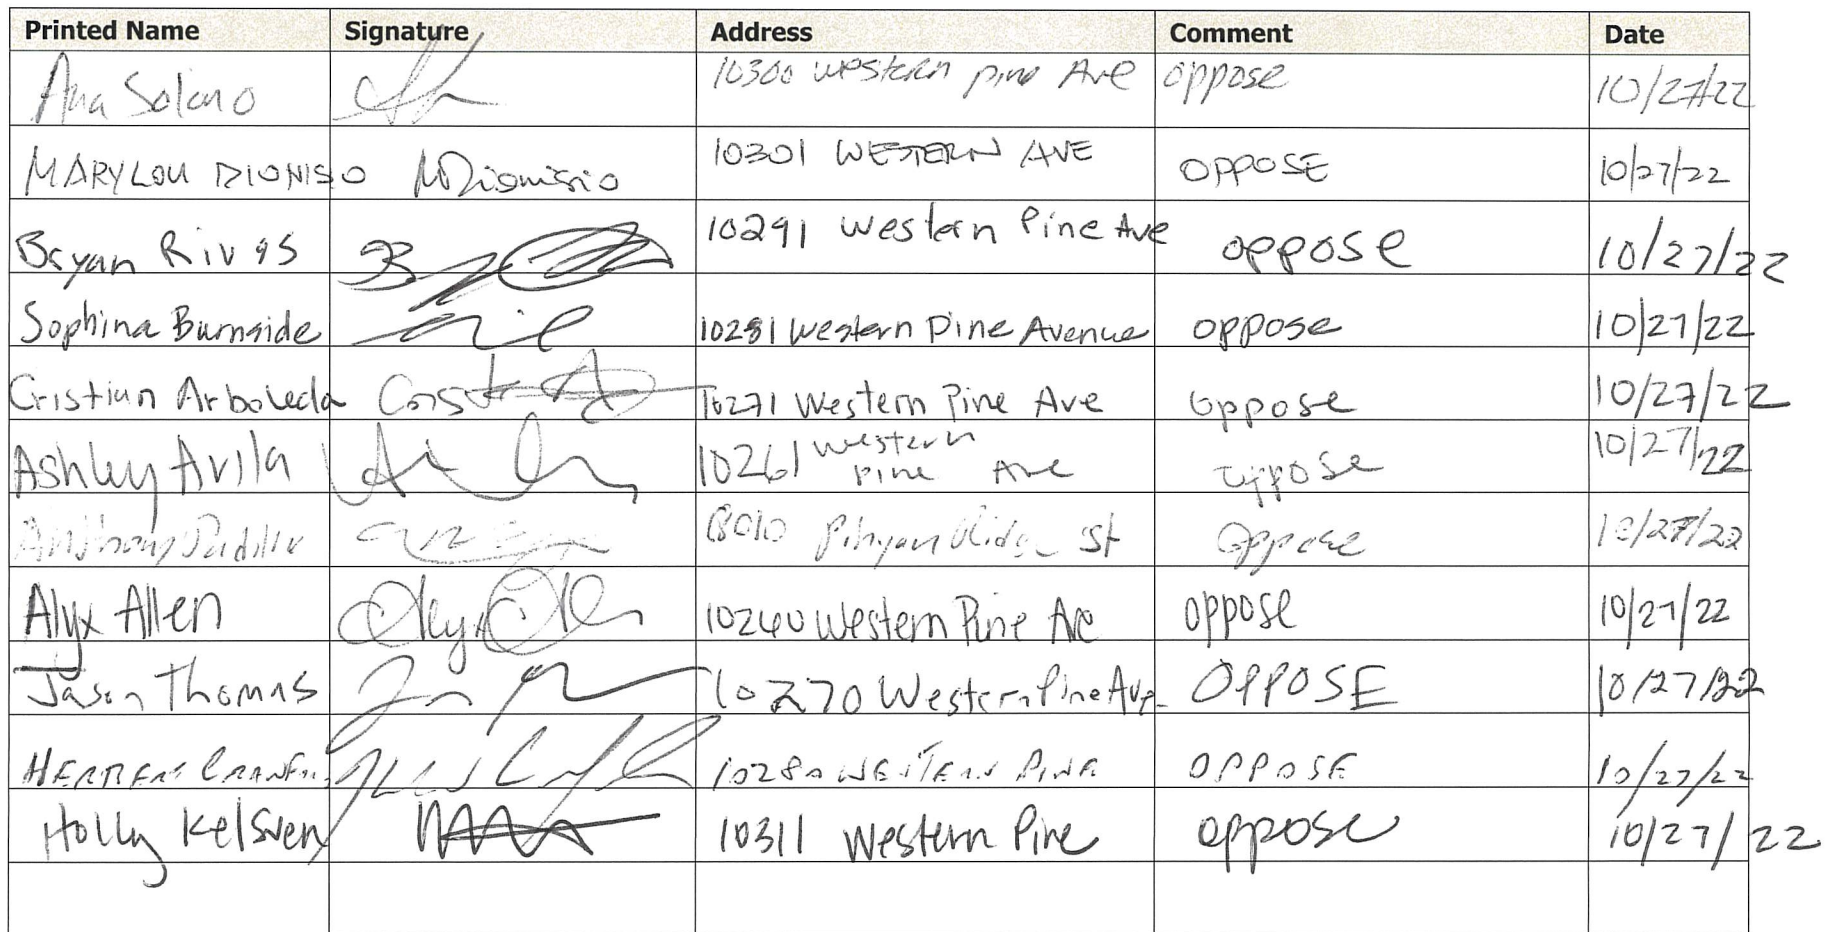 Printed Name Signature Address Comment Date
Ana Solano 10300 western pine Ave oppose 10/27/22
MARYLOU DIONISIO MDionisio 10301 WESTERN AVE OPPOSE 10/27/22
Bryan Rivas 10291 Western Pine Ave oppose 10/27/22
Sophina Burnside 10281 Western Pine Avenue oppose 10/27/22
Cristian Arboleda 10271 Western Pine Ave oppose 10/27/22
Ashley Avila 10261 western pine Ave oppose 10/27/22
Anthony Padilla St oppose 10/27/22
Alyx Allen Alyx Allen 10240 Western Pine Ave oppose 10/27/22
Jason Thomas 10270 Western Pine Ave. OPPOSE 10/27/22
10280 WESTERN PINE OPPOSE 10/27/22
Holly Kelsven 10311 Western Pine oppose 10/27/22